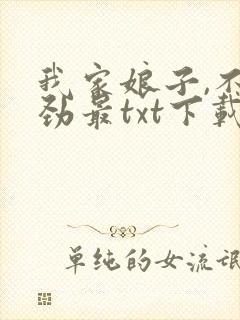 我家娘子,不
劲最txt下载
单纯的女流氓